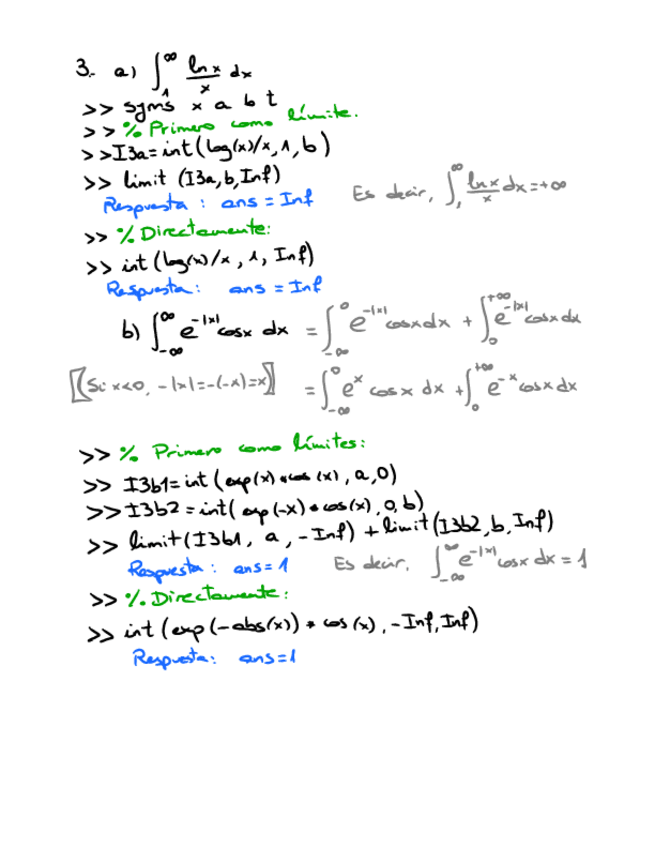 3.- a) ∫₁^∞ ln x / x dx
>> syms x a b t
>> % Primero como límite.
>> I3a = int(log(x)/x, 1, b)
>> limit (I3a, b, Inf)
Respuesta : ans = Inf
Es decir, ∫₁^∞ ln x / x dx = +∞
>> % Directamente:
>> int (log(x)/x, 1, Inf)
Respuesta: ans = Inf
b) ∫_{-∞}^{∞} e^{-|x|} cosx dx = ∫_{-∞}^{0} e^{-|x|} cosx dx + ∫_{0}^{+∞} e^{-|x|} cosx dx
[(Si x<0, -|x| = -(-x) = x)] = ∫_{-∞}^{0} e^{x} cos x dx + ∫_{0}^{+∞} e^{-x} cosx dx
>> % Primero como límites:
>> I3b1 = int (exp(x) * cos (x), a, 0)
>> I3b2 = int( exp (-x) * cos(x), 0, b)
>> limit (I3b1, a, -Inf) + limit (I3b2, b, Inf)
Respuesta : ans = 1 Es decir, ∫_{-∞}^{∞} e^{-|x|} cosx dx = 1
>> % Directamente:
>> int (exp (-abs(x)) * cos (x), -Inf, Inf)
Respuesta: ans = 1